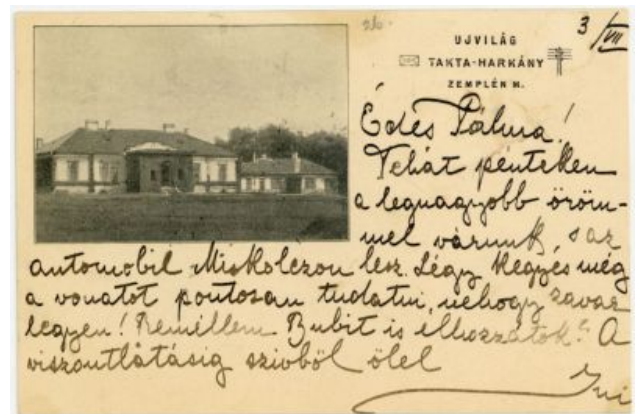 26.
3/VII
UJVILÁG
TAKTA-HARKÁNY
ZEMPLÉN M.
Édes Pálma!
Tehát pénteken
a legnagyobb öröm-
mel várunk, s az
automobil Miskolczon lesz. Légy kegyes még
a vonatot pontosan tudatni, nehogy zavar
legyen! Remélem Bubit is elhozzátok? A
viszontlátásig szivből ölel